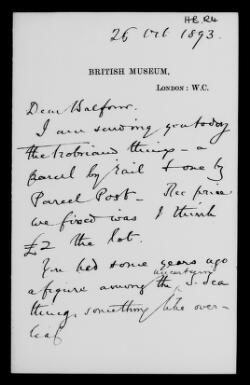 HB R4
26 Oct 1893.
BRITISH MUSEUM,
LONDON: W.C.
Dear Balfour.
I am sending you today
the Trobriand things – a
parcel by rail & one by
Parcel Post – The price
we fixed was I think
£2 the lot.
You had some years ago
a figure among the uncertain S. Sea
things something like over-
leaf